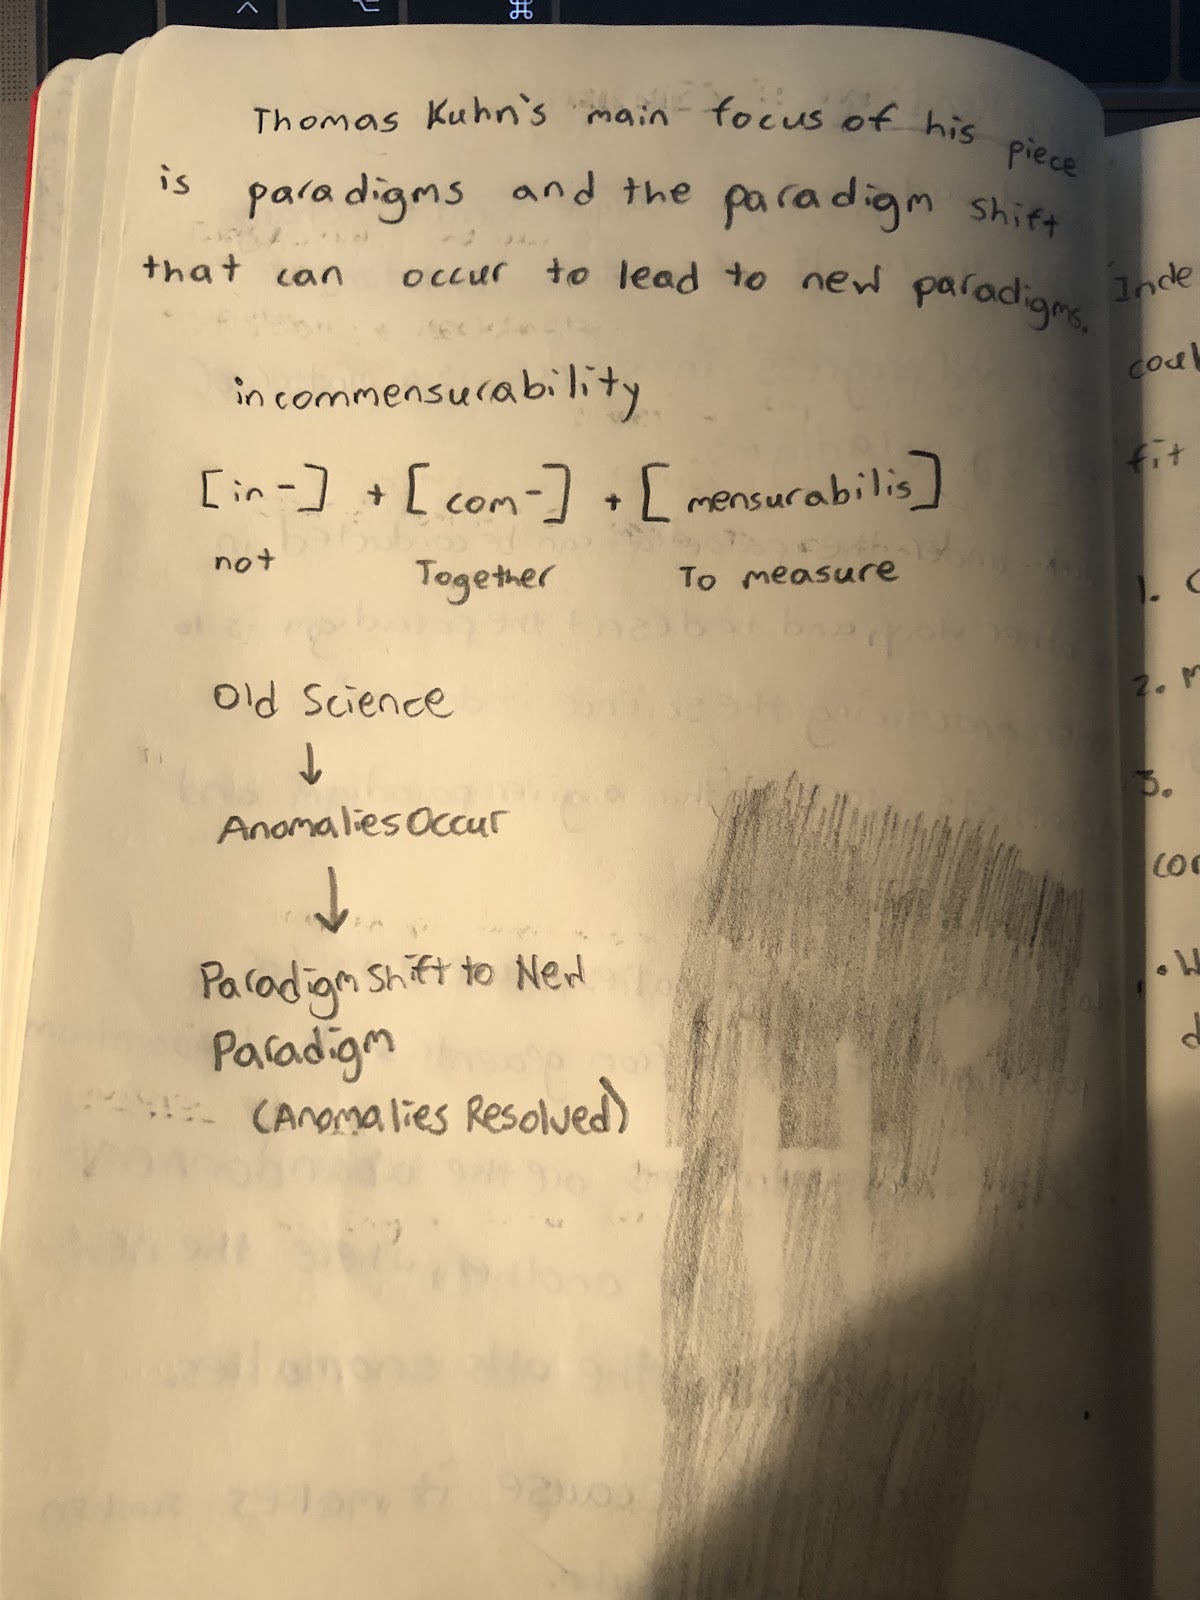 Thomas Kuhn's main focus of his piece
is paradigms and the paradigm shift
that can occur to lead to new paradigms.
incommensurability
[in-] + [com-] + [mensurabilis]
not Together To measure
Old Science
↓
Anomalies Occur
↓
Paradigm Shift to New
Paradigm
(Anomalies Resolved)
fit
1.
2.
3.